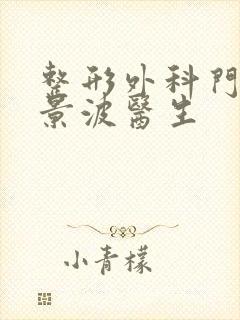 整形外科門
景波醫生
小青檬